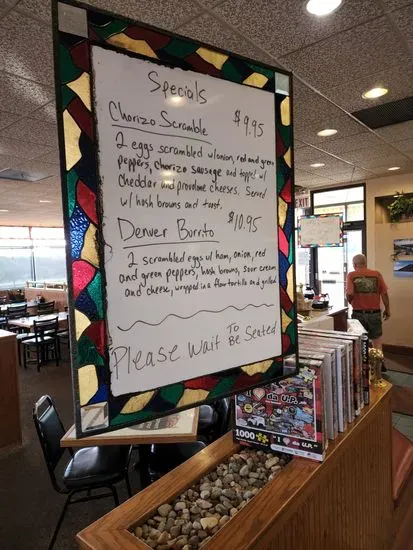 Specials
Chorizo Scramble $9.95
2 eggs scrambled w/onion, red and green
peppers, chorizo sausage and topped w/
cheddar and provolone cheeses. Served
w/ hash browns and toast.
Denver Burrito $10.95
2 scrambled eggs w/ ham, onion, red
and green peppers, hash browns, sour cream
and cheese, wrapped in a flour tortilla and grilled
Please Wait TO
BE Seated
EXIT
da U.P.
1000
"I da U.P."